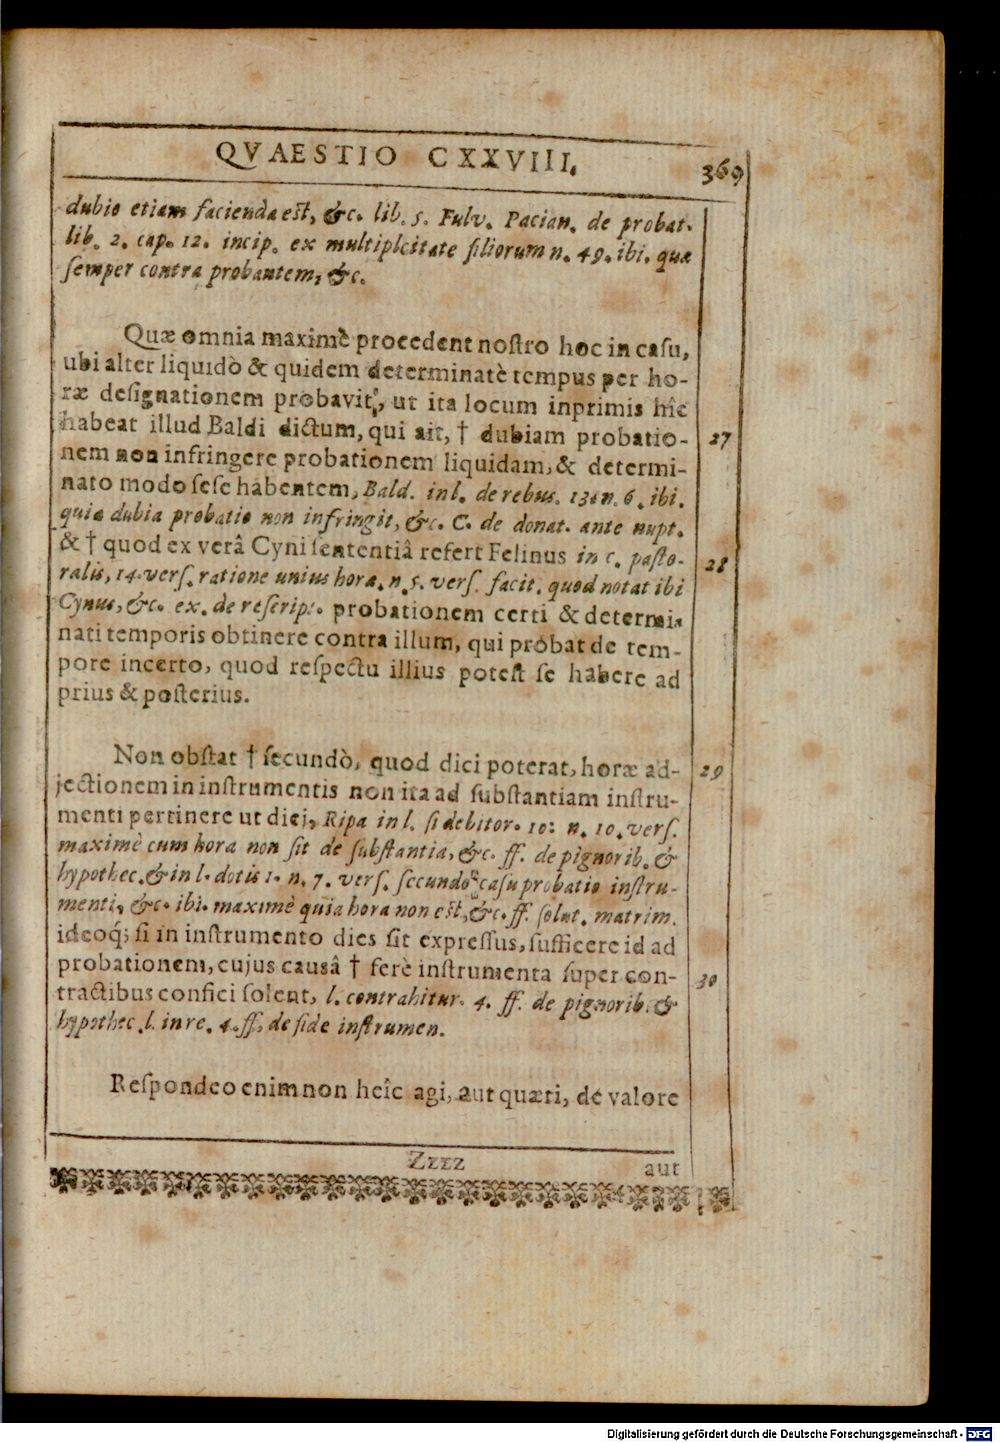 QVAESTIO CXXVIII. 369
dubio etiam facienda est, &c. lib. 5. Fulv. Pacian. de probat.
lib. 2. cap. 12. incip. ex multiplcitate filiorum n. 49. ibi. quæ
semper contra probantem, &c.
Quæ omnia maximè procedent nostro hoc in casu,
ubi alter liquidò & quidem determinatè tempus per ho-
ræ designationem probavit, ut ita locum inprimis hîc
habeat illud Baldi dictum, qui ait, † dubiam probatio- 27
nem non infringere probationem liquidam, & determi-
nato modo sese habentem, Bald. in l. de rebus. 13. n. 6. ibi.
quia dubia probatio non infringit, &c. C. de donat. ante nupt.
& † quod ex verâ Cyni sententiâ refert Felinus in c. pasto- 28
ralis, 14. vers. ratione unius hora. n. 5. vers. facit. quod notat ibi
Cynus, &c. ex. de rescript. probationem certi & determi-
nati temporis obtinere contra illum, qui probat de tem-
pore incerto, quod respectu illius potest se habere ad
prius & posterius.
Non obstat † secundò, quod dici poterat, horæ ad- 29
jectionem in instrumentis non ita ad substantiam instru-
menti pertinere ut diei, Ripa in l. si debitor. 10: n. 10. vers.
maximè cum hora non sit de substantia, &c. ff. de pignorib. &
hypothec. & in l. dotis 1. n. 7. vers. secundo casu probatio instru-
menti, &c. ibi. maximè quia hora non est, &c. ff. solut. matrim.
ideoq́; si in instrumento dies sit expressus, sufficere id ad
probationem, cujus causâ † ferè instrumenta super con- 30
tractibus confici solent, l. contrahitur. 4. ff. de pignorib. &
hypothec. l. in re. 4. ff. de fide instrumen.
Respondeo enim non heîc agi, aut quæri, de valore
Zzzz aut
Digitalisierung gefördert durch die Deutsche Forschungsgemeinschaft - DFG